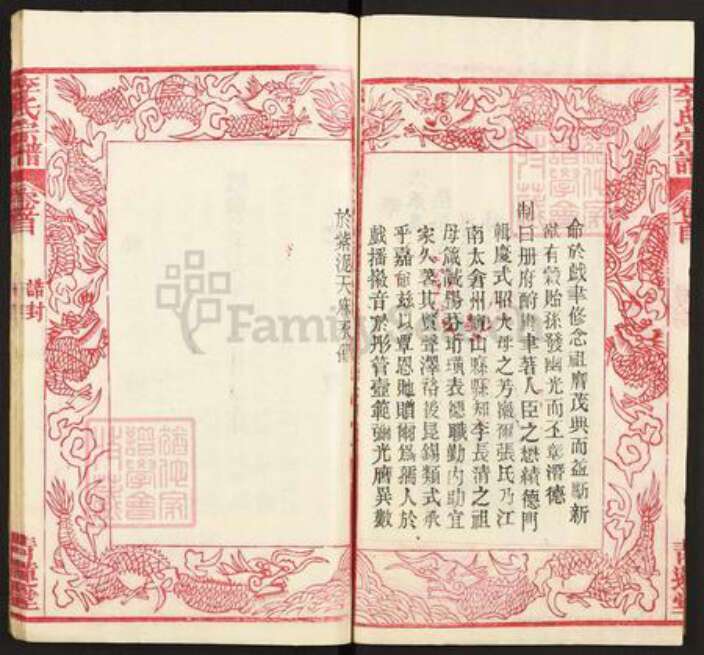 李氏宗譜
卷首
命於戲聿修念祖膺茂典而益勵新
猷有穀貽孫發幽光而丕彰潛德
制曰册府酬勲聿著人臣之懋績德門
輯慶式昭大母之芳徽爾張氏乃江
南太倉州崑山縣縣知李長清之祖
母箴誡揚芬珩璜表德職勤內助宜
家久著其賢聲澤裕後昆錫類式承
乎嘉命茲以覃恩貤贈爾爲孺人於
戲播徽音於彤管壼範彌光膺異數
於紫泥天庥永
李氏宗譜
卷首
誥封
FamilySearch